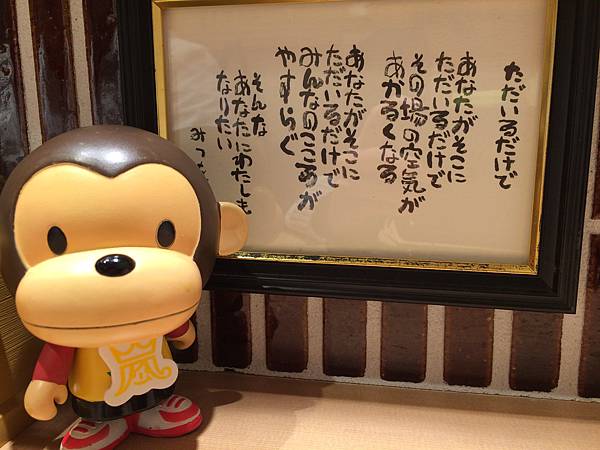 ただいるだけで
あなたがそこに
ただいるだけで
その場の空気が
あかるくなる
あなたがそこに
ただいるだけで
みんなのこころが
やすらぐ
そんな
あなたにわたしも
なりたい
みつを
嵐